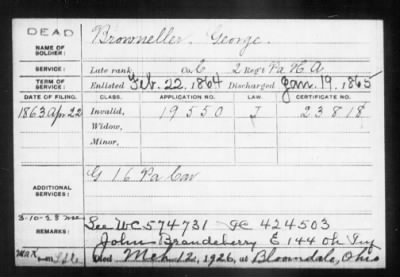 DEAD
NAME OF SOLDIER: Browneller, George.
SERVICE: Late rank, Co. C, 2 Reg't Pa H. A.
TERM OF SERVICE: Enlisted Feb. 22, 1864 Discharged Jan. 19, 1865
DATE OF FILING. CLASS. APPLICATION NO. LAW. CERTIFICATE NO.
1863 Apr 22 Invalid, 19550 23818
Widow,
Minor,
ADDITIONAL SERVICES: G 16 Pa Cav
3-10-28
REMARKS: See WC 574731 424503
John Brandeberry E 144 Oh Inf
Died Mch 12, 1926, at Bloomdale, Ohio